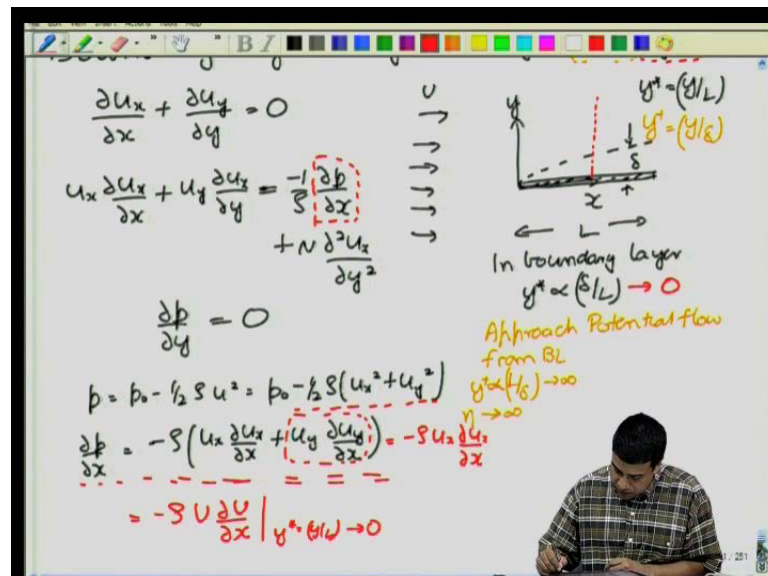 ∂uₓ/∂x + ∂u_y/∂y = 0
uₓ ∂uₓ/∂x + u_y ∂uₓ/∂y = -1/ρ ∂p/∂x
+ ν ∂²uₓ/∂y²
∂p/∂y = 0
p = p₀ - 1/2 ρ u² = p₀ - 1/2 ρ (uₓ² + u_y²)
∂p/∂x = -ρ (uₓ ∂uₓ/∂x + u_y ∂u_y/∂x) = -ρ uₓ ∂uₓ/∂x
= -ρ U ∂U/∂x | y* = (y/L) → 0
U
y
y* = (y/L)
y† = (y/δ)
δ
x
L
In boundary layer
y* ∝ (δ/L) → 0
Approach Potential flow
from BL
y† ∝ (L/δ) → ∞
η → ∞
B I
/ 251